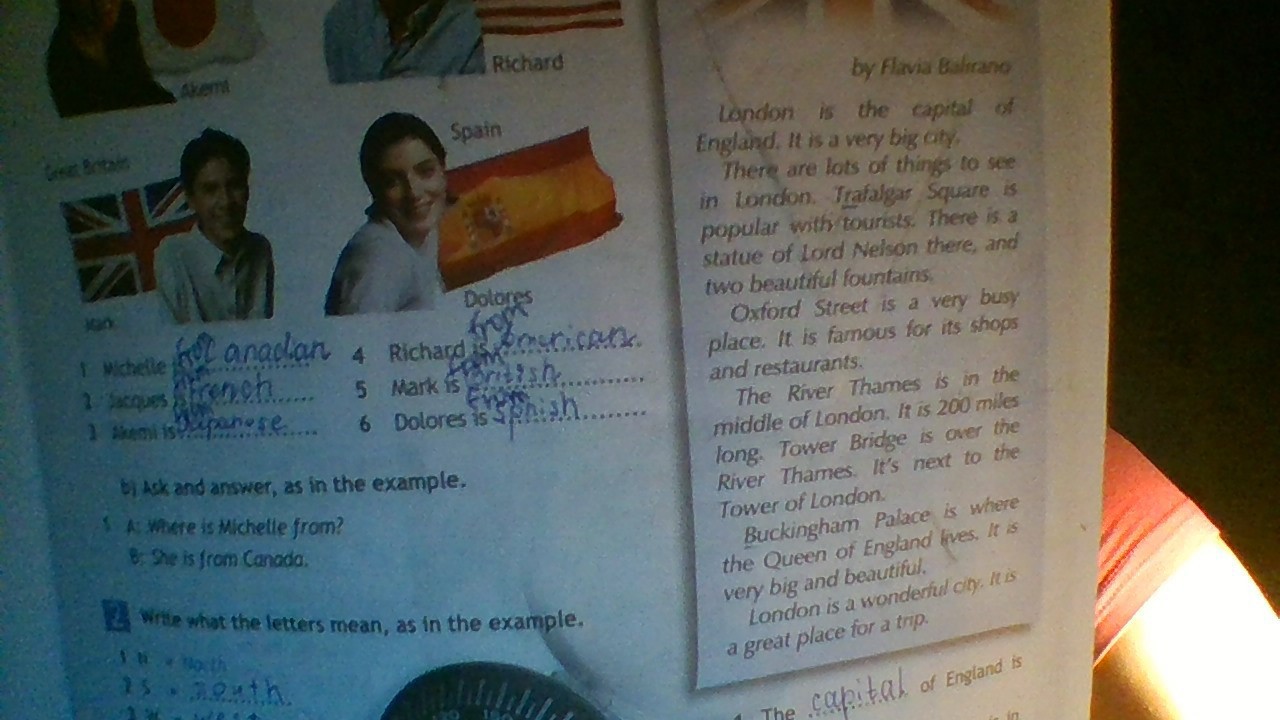 Akemi
Richard
Great Britain
Spain
Mark
Dolores
1 Michelle Canadian
2 Jacques is french
3 Akemi is Japanese
4 Richard is from American
5 Mark is from British
6 Dolores is from Spnish
b) Ask and answer, as in the example.
1 A: Where is Michelle from?
B: She is from Canada.
2 Write what the letters mean, as in the example.
1 N = North
2 S = South
by Flavia Balirano
London is the capital of
England. It is a very big city.
There are lots of things to see
in London. Trafalgar Square is
popular with tourists. There is a
statue of Lord Nelson there, and
two beautiful fountains.
Oxford Street is a very busy
place. It is famous for its shops
and restaurants.
The River Thames is in the
middle of London. It is 200 miles
long. Tower Bridge is over the
River Thames. It's next to the
Tower of London.
Buckingham Palace is where
the Queen of England lives. It is
very big and beautiful.
London is a wonderful city. It is
a great place for a trip.
The capital of England is